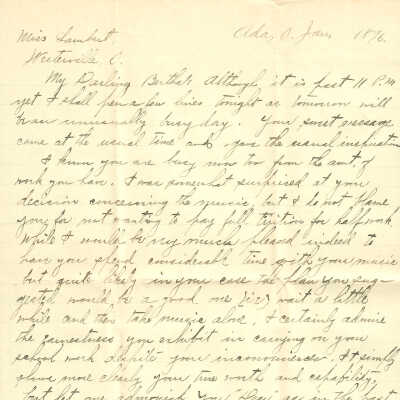 Miss Lambert, Ada, O. Jan. 1896.
Westerville, O.
My Darling Bertha: Although it is past 11 P.M.
yet I shall pen a few lines tonight as tomorrow will
be an unusually busy day. Your sweet message
came at the usual time and gave the usual inspiration
I know you are busy now too from the amt. of
work you have. I was somewhat surprised at your
decision concerning the music, but I do not blame
you for not wanting to pay full tuition for half work
While I would be very much pleased indeed to
have you spend considerable time with your music
but quite likely in your case the plan you sug-
gested would be a good one, wait a little
while and then take music alone. I certainly admire
the earnestness you exhibit in carrying on your
school work despite your inconveniences. It simply
shows more clearly your true worth and capability,
but let me admonish you in the past